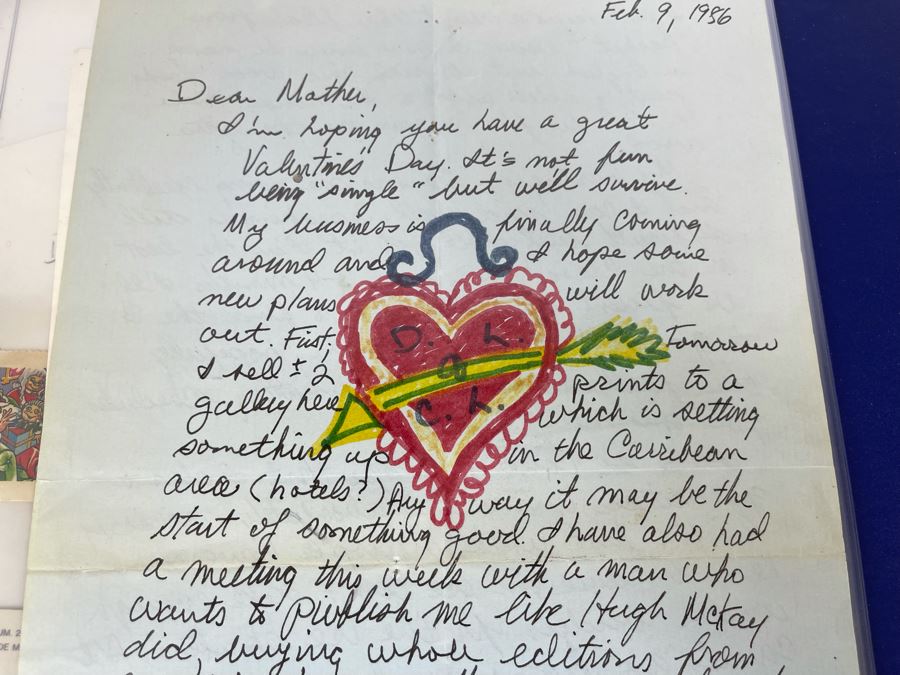 Feb. 9, 1986
Dear Mother,
I'm hoping you have a great
Valentines' Day. It's not fun
being "single" but we'll survive.
My business is finally coming
around and I hope some
new plans will work
out. First, Tomorrow
I sell ± 2 prints to a
gallery here which is setting
something up in the Carribean
area (hotels?) Any way it may be the
start of something good. I have also had
a meeting this week with a man who
wants to publish me like Hugh McKay
did, buying whole editions from
D. L.
C. L.
UM. 2
DE M